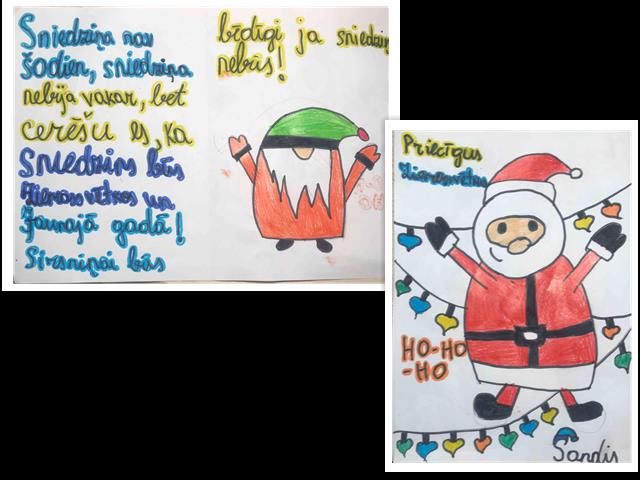 Sniedziņa nav
šodien, sniedziņa
nebija vakar, bet
cerēšu es, ka
Sniedziņš būs
Ziemassvētkos un
Jaunajā gadā!
Sirsniņai būs
bēdīgi ja sniedziņ
nebūs!
Priecīgus
Ziemassvētkus
HO-HO
-HO
Sandis